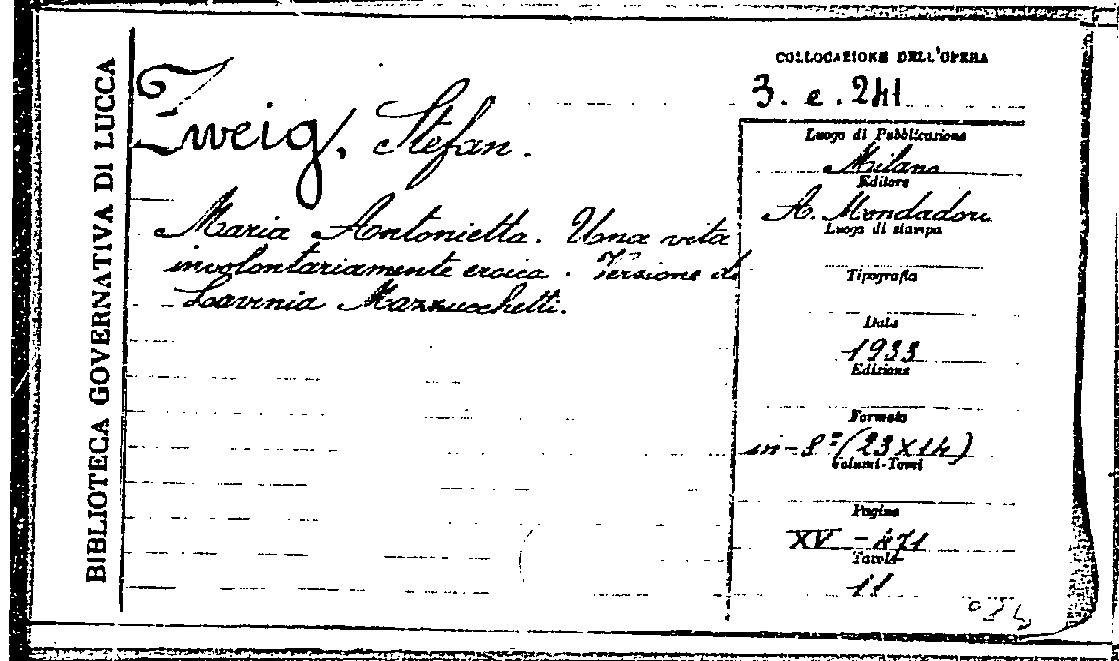 BIBLIOTECA GOVERNATIVA DI LUCCA
Zweig, Stefan.
Maria Antonietta. Una vita
involontariamente eroica. Versione di
Lavinia Mazzucchetti.
COLLOCAZIONE DELL'OPERA
3. e. 241
Luogo di Pubblicazione
Milano
Editore
A. Mondadori
Luogo di stampa
Tipografia
Data
1933
Edizione
Formato
in-8º (23X14)
Volumi-Tomi
Pagine
XV - 471
Tavole
11